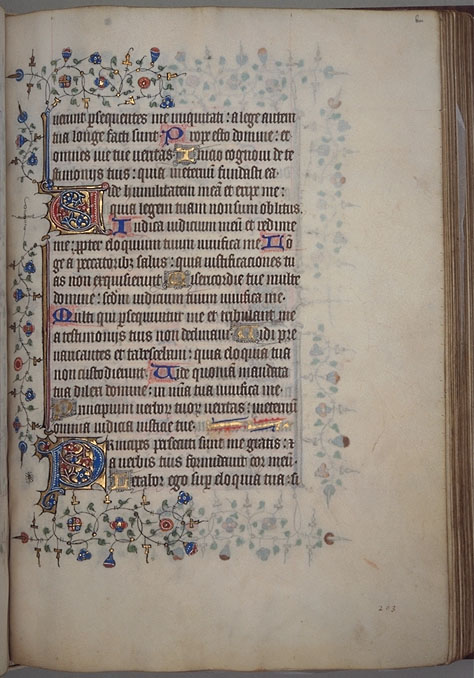 uerunt p̱sequentes me iniquitati: a lege autem
tua longe facti sunt. Prope esto domine: et
omnes uie tue ueritas. Inicio cognoui de te
stimonijs tuis: quia ineternū fundasti ea.
Vide humilitatem meā et eripe me:
quia legem tuam non sum oblitus.
Iudica iudicium meū et redime
me: ꝓpter eloquium tuum uiuifica me. Lō
ge a peccatorib; salus: quia iustificationes tu
as non exquisierunt. Misericordie tue multe
domine: scdm̄ iudicium tuum uiuifica me.
Multi qui ꝑsequūtur me et tribulant me
a testimonijs tuis non declinaui. Vidi pre
uaricantes et tabescebam: quia eloquia tua
non custodierunt. Vide quoniā mandata
tua dilexi domine: in mīa tua uiuifica me.
Principium uerboꝝ tuoꝝ ueritas: ineternū
omnia iudicia iusticie tue.
Principes persecuti sunt me gratis: &
a uerbis tuis formidauit cor meū.
Letabor ego suꝑ eloquia tua: si
203